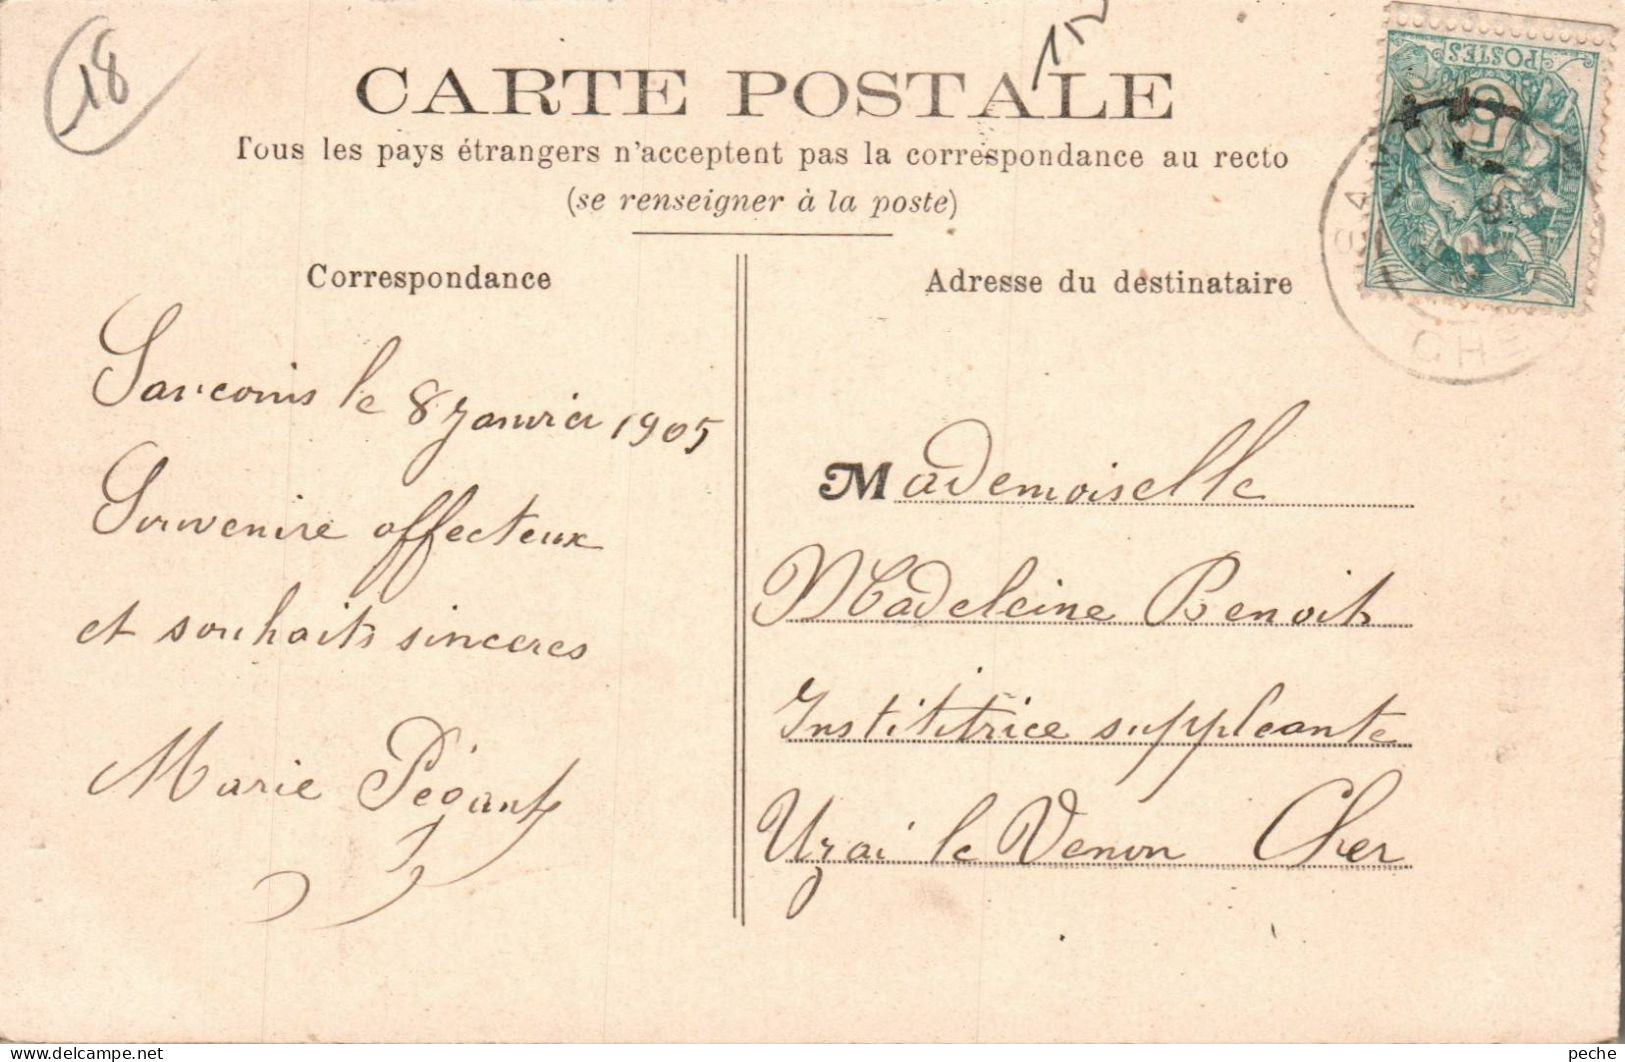 18
CARTE POSTALE
Tous les pays étrangers n'acceptent pas la correspondance au recto
(se renseigner à la poste)
Correspondance
Sancoins le 8 Janvier 1905
Souvenire affecteux
et souhaits sinceres
Marie Pégant
Adresse du destinataire
POSTES
5
CHE
Mademoiselle
Madeleine Benoit
Instititrice suppleante
Uzai le Venon Cher
peche